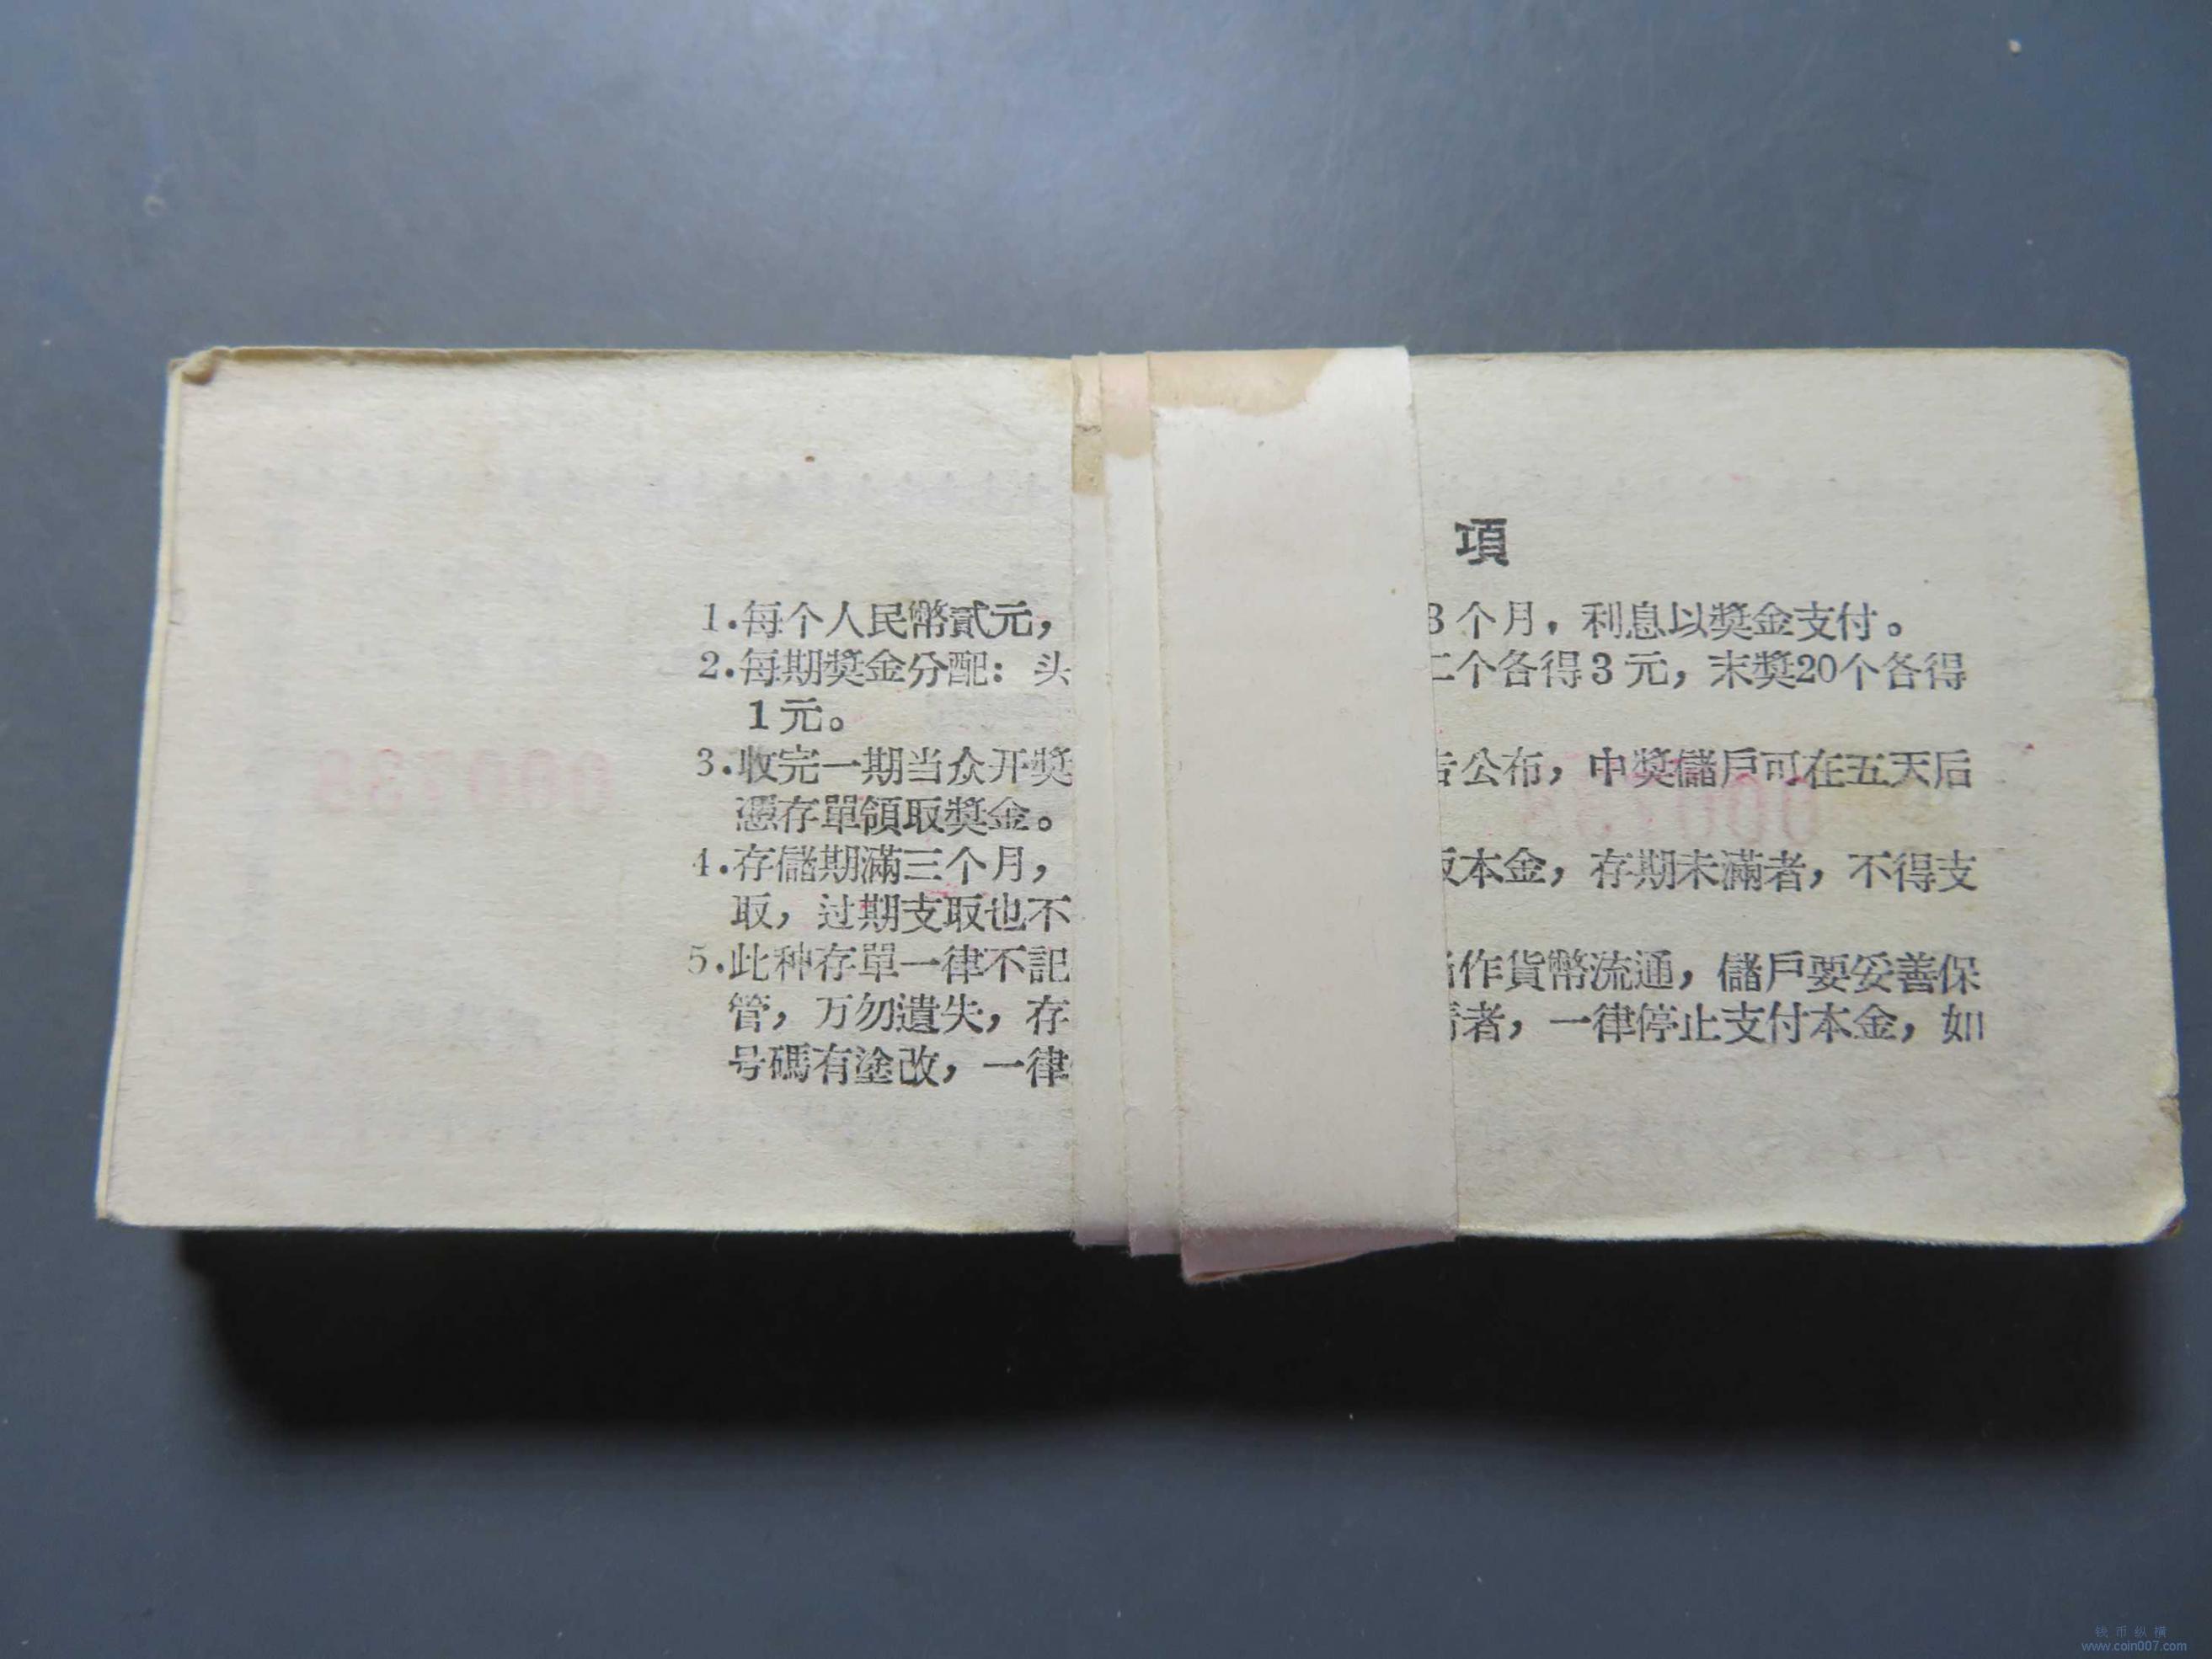 項
1.每个人民幣貳元， 3个月，利息以獎金支付。
2.每期獎金分配：头 二个各得3元，末獎20个各得
1元。
3.收完一期当众开獎 告公布，中獎儲戶可在五天后
憑存單領取獎金。
4.存儲期滿三个月， 本金，存期未滿者，不得支
取，过期支取也不
5.此种存單一律不記 作貨幣流通，儲戶要妥善保
管，万勿遺失，存 者，一律停止支付本金，如
号碼有塗改，一律
钱币纵横
www.coin007.com